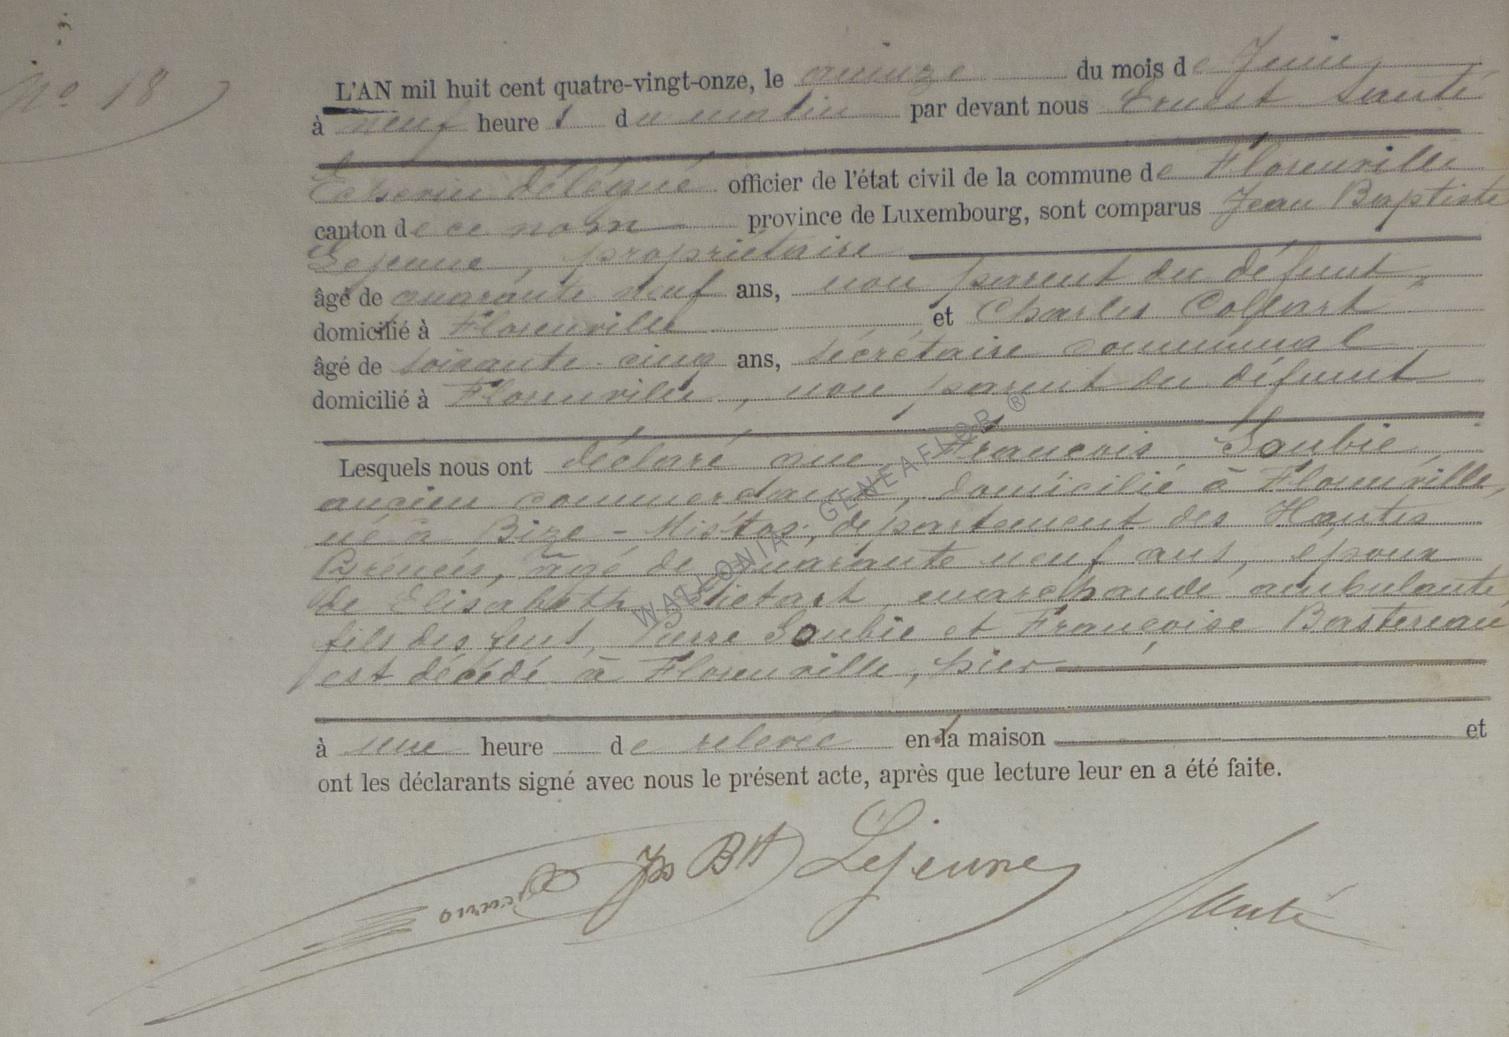 N° 18
L'AN mil huit cent quatre-vingt-onze, le quinze du mois de Juin,
à neuf heures du matin par devant nous Ernest Santé
Echevin délégué officier de l'état civil de la commune de Florenville
canton de ce nom province de Luxembourg, sont comparus Jean Baptiste
Lejeune, propriétaire
âgé de quarante neuf ans, non parent du défunt,
domicilié à Florenville et Charles Colpart
âgé de soixante-cinq ans, secrétaire communal
domicilié à Florenville, non parent du défunt
Lesquels nous ont déclaré que François Soubie,
ancien commerçant, domicilié à Florenville,
né à Bize-Nistos, département des Hautes
Pyrénées, âgé de quarante neuf ans, époux
de Elisabeth marchande ambulante,
fils des feus, Pierre Soubie et Françoise Bastereau
est décédé à Florenville, hier
à une heure de relevée en la maison et
ont les déclarants signé avec nous le présent acte, après que lecture leur en a été faite.
Jn Bte Lejeune Santé
WALLONIA - GENEAFLOR ®